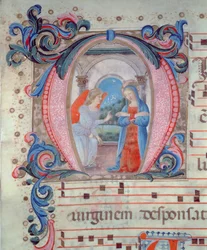 M
uirginem desponsat